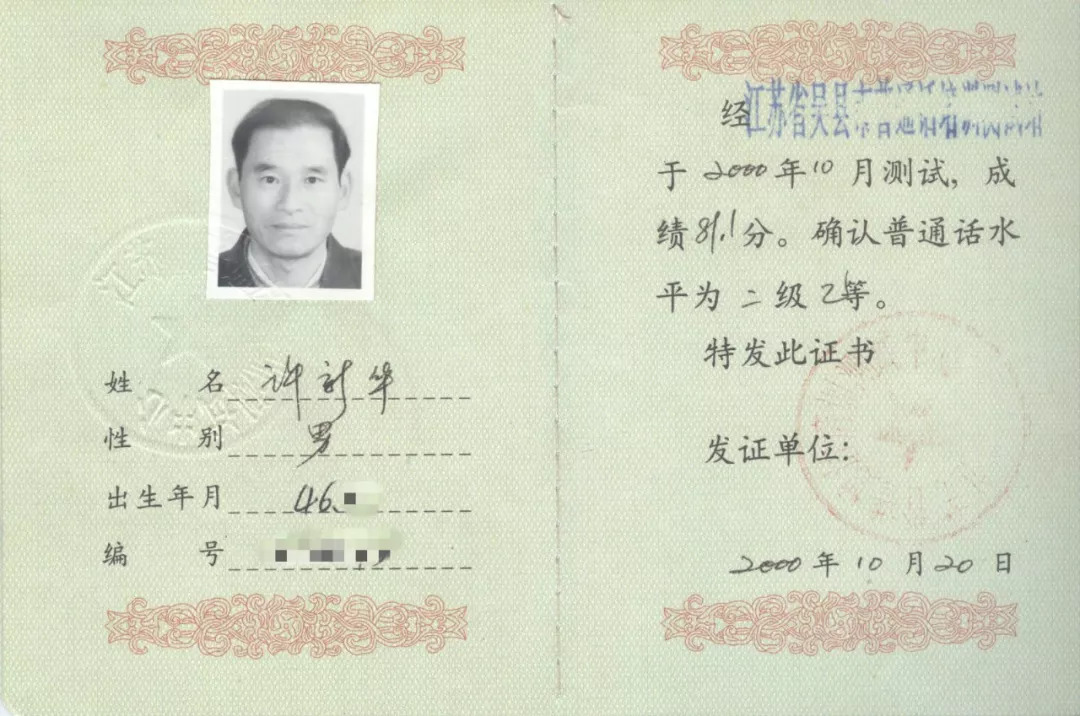 姓 名 许新华
性 别 男
出生年月 46.
编 号
经江苏省吴县
于 2000 年 10 月测试，成
绩 81.1 分。确认普通话水
平为 二 级 乙 等。
特发此证书
发证单位：
2000 年 10 月 20 日